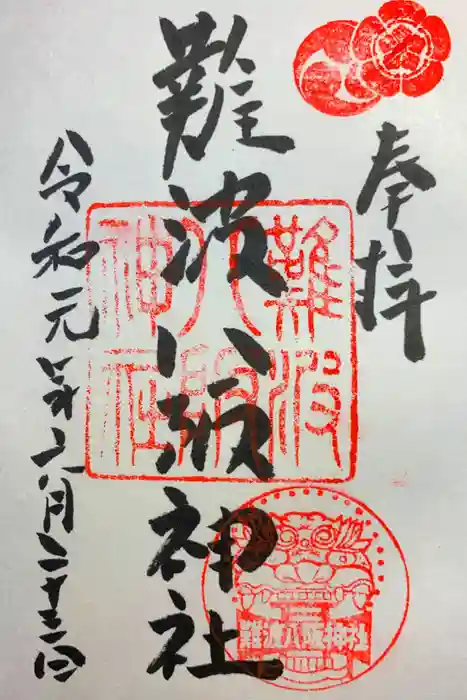 奉拝
難波八阪神社
令和元年六月二十三日
難波
八阪
神社
難波八阪神社